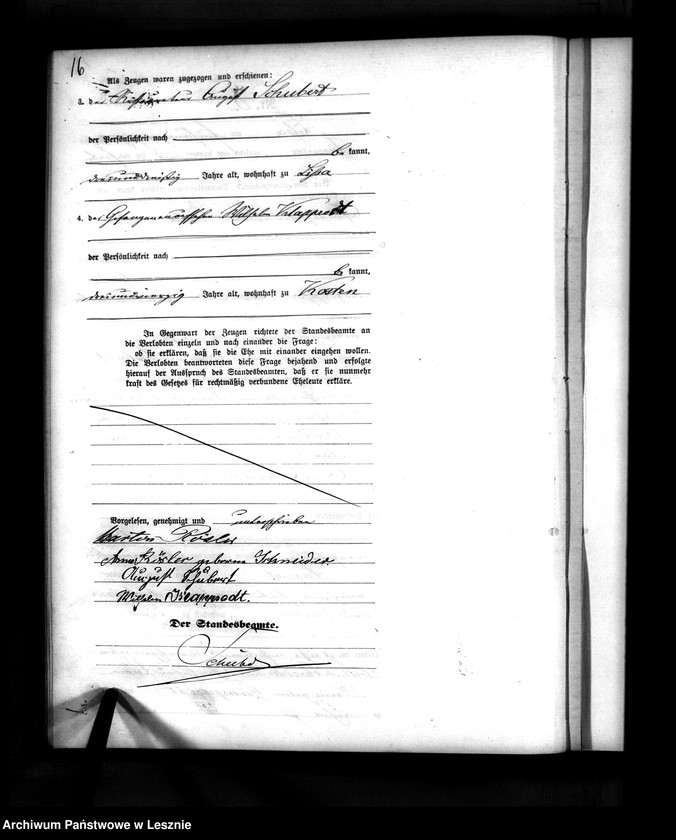 16
Als Zeugen waren zugezogen und erschienen:
3. der August Schubert
der Persönlichkeit nach
be kannt,
dreiunddreißig Jahre alt, wohnhaft zu Lissa
4. der Gefangenenaufseher Wilhelm Klapprodt
der Persönlichkeit nach
be kannt,
dreiundvierzig Jahre alt, wohnhaft zu Kosten
In Gegenwart der Zeugen richtete der Standesbeamte an
die Verlobten einzeln und nach einander die Frage:
ob sie erklären, daß sie die Ehe mit einander eingehen wollen.
Die Verlobten beantworteten diese Frage bejahend und erfolgte
hierauf der Ausspruch des Standesbeamten, daß er sie nunmehr
kraft des Gesetzes für rechtmäßig verbundene Eheleute erkläre.
Vorgelesen, genehmigt und unterschrieben
Rösler
Anna Rösler geborene Schneider
August Schubert
Wilhelm Klapprodt.
Der Standesbeamte.
Archiwum Państwowe w Lesznie